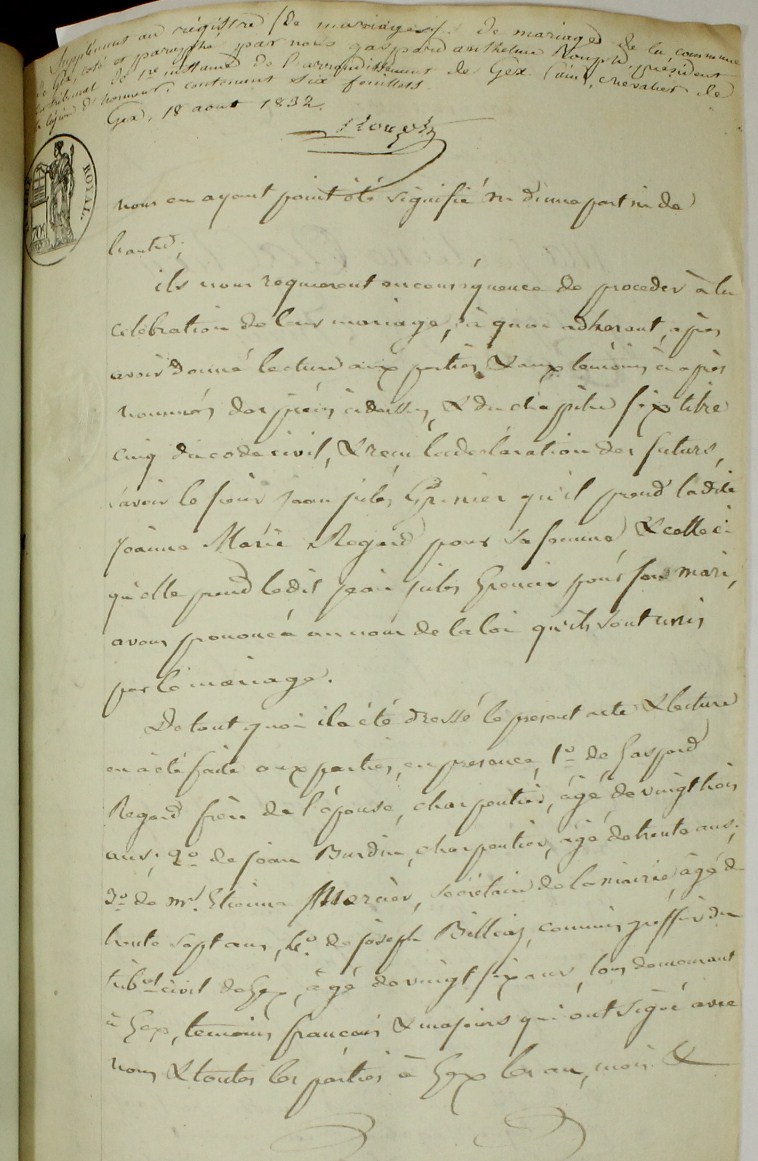 Supplément au régistre (de mariages) de mariage de la commune
de Gex, coté et paraphé par nous gaspard anthelme Rouph, président
du tribunal de 1re instance de l'arrondissement de Gex (ain), chevalier de
la légion d'honneur, contenant six feuillets.
Gex, 18 aout 1832.
ROYAL
nous en ayant point été signifié ni d'une part ni de
l'autre;
ils nous requierent en conséquence de proceder à la
célébration de leur mariage, à quoi adhérant, après
avoir donné lecture aux parties & aux témoins ci après
nommés des pièces ci dessus, & du chapitre six titre
cinq du code civil, & reçu la déclaration des futurs,
savoir le sieur jean jules Grenier qu'il prend ladite
jeanne Marie Regard pour sa femme, & celle ci
qu'elle prend ledit jean jules Grenier pour son mari,
avons prononcé au nom de la loi qu'ils sont unis
par le mariage.
De tout quoi il a été dressé le présent acte & lecture
en a été faite aux parties, en présence, 1o de Gaspard
Regard frère de l'épouse, charpentier, âgé de vingt trois
ans; 2o de jean Burdin, charpentier, âgé de trente ans;
3o de mr. Etienne Mercier, secrétaire de la mairie, âgé de
trente sept ans, 4o de joseph Billiaz, commis greffier du
tribal civil de Gex, âgé de vingt six ans, tous demeurant
à Gex, témoins français & majeurs qui ont signé avec
nous & toutes les parties à Gex les an, mois &